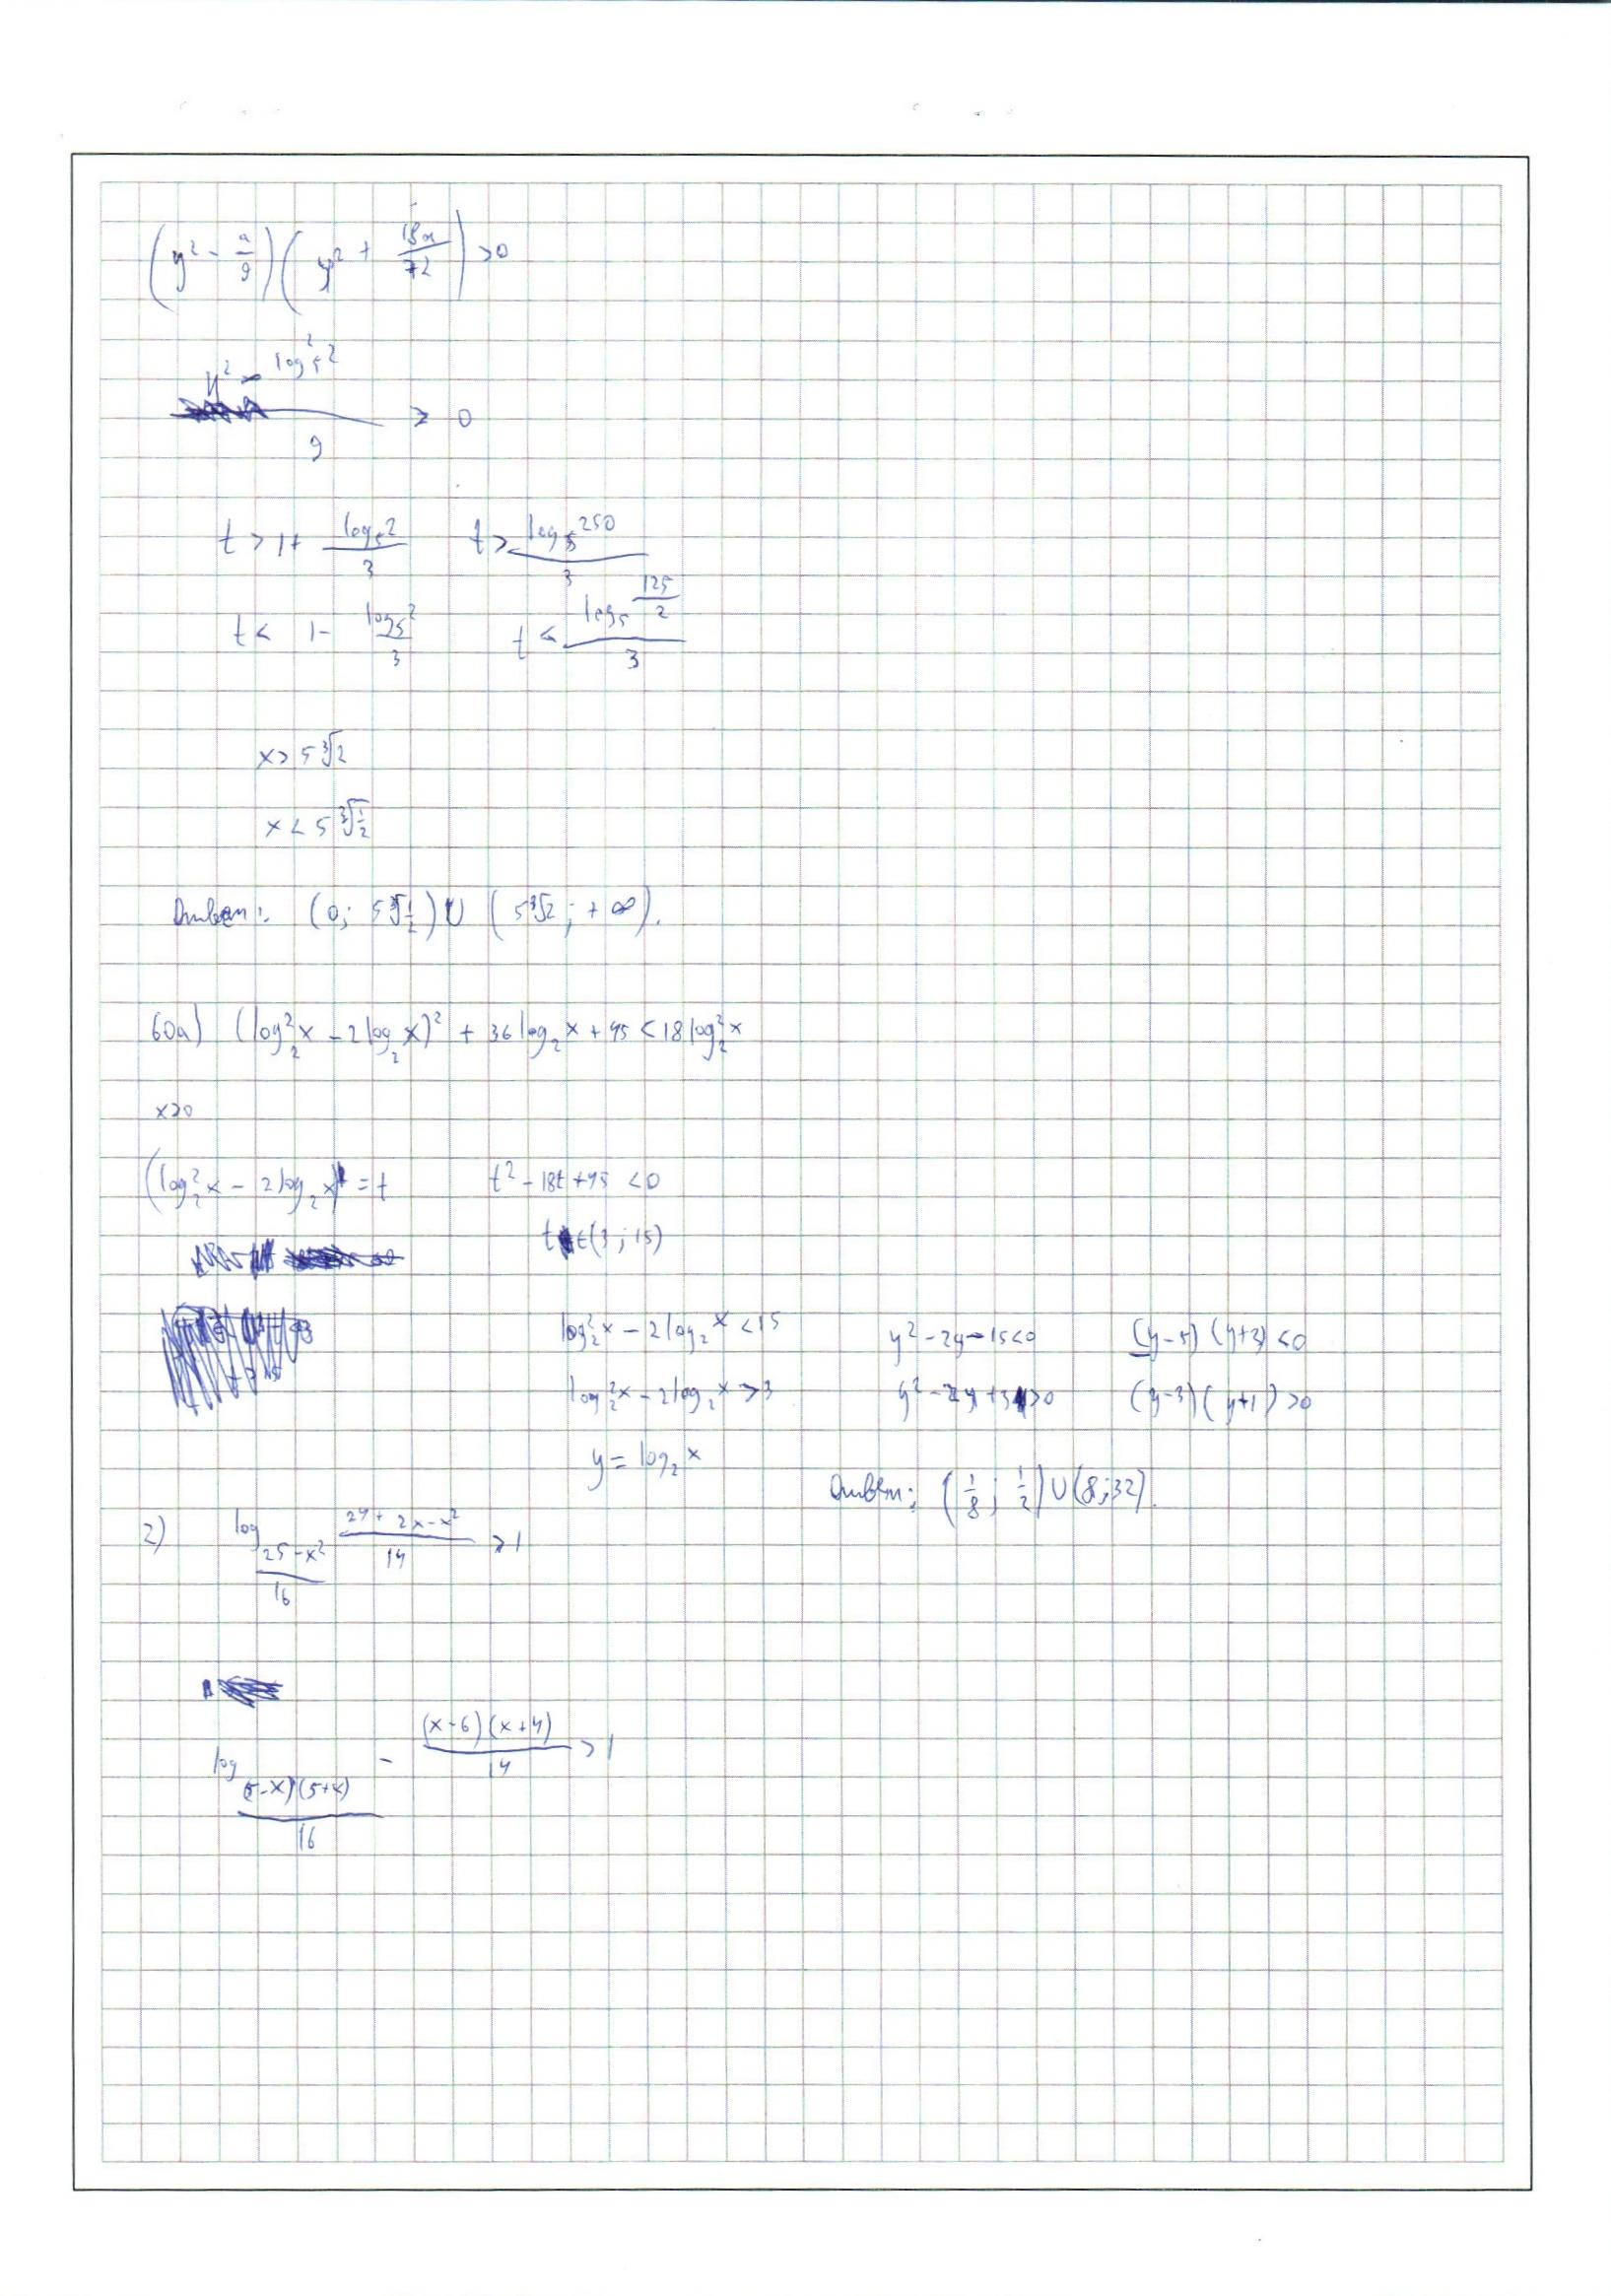 (y² - a/9)(y² + 18a/72) > 0
y² - log₅²2 / 9 > 0
t > 1 + log₅2 / 3    t > log₅250 / 3
t < 1 - log₅2 / 3    t < log₅ 125/2 / 3
x > 5∛2
x < 5∛(1/2)
Ответ: (0; 5∛(1/2)) ∪ (5∛2; +∞).
60a) (log₂²x - 2log₂x)² + 36log₂x + 45 < 18log₂²x
x>0
(log₂²x - 2log₂x) = t    t² - 18t + 45 < 0
t ∈ (3; 15)
log₂²x - 2log₂x < 15    y² - 2y - 15 < 0    (y-5)(y+3) < 0
log₂²x - 2log₂x > 3    y² - 2y + 3 > 0    (y-3)(y+1) > 0
y = log₂x
Ответ: (1/8; 1/2) ∪ (8; 32).
2) log_{(25-x²)/16} (24+2x-x²)/14 > 1
log_{(5-x)(5+x)/16} - (x-6)(x+4)/14 > 1